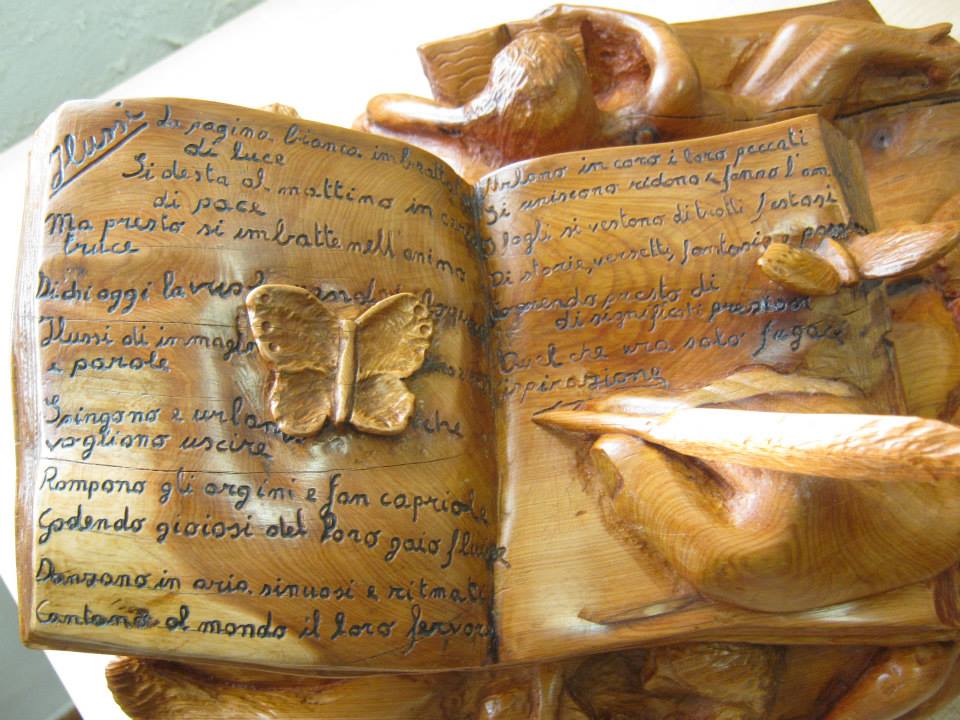 Flussi
La pagina bianca
di luce
Si desta al mattino in
di pace
Ma presto si imbatte nell'anima
truce
Di chi oggi la
Flussi di
e parole
Spingono e che
vogliono uscire
Rompono gli argini e fan capriole
Godendo gioiosi del loro gaio
Danzano in aria sinuosi e ritmati
Cantano al mondo il loro
Urlano in coro i loro peccati
Si uniscono ridono e fanno l'am
fogli si vestono di tratti festosi
Di storie, versetti, fantasie e
presto di
di significati
Quel che era solo fugace
ispirazione